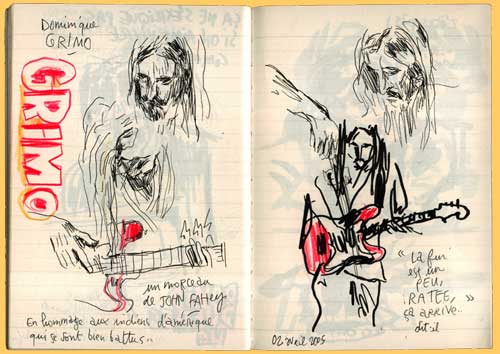 Dominique
GRIMO
GRIMO
un morceau
de JOHN FAHEY
En hommage aux indiens d'amérique
qui se sont bien battus..
"La fin
est un
PEU
RATÉE,
ça arrive.. "
dit-il
02 avril 2005